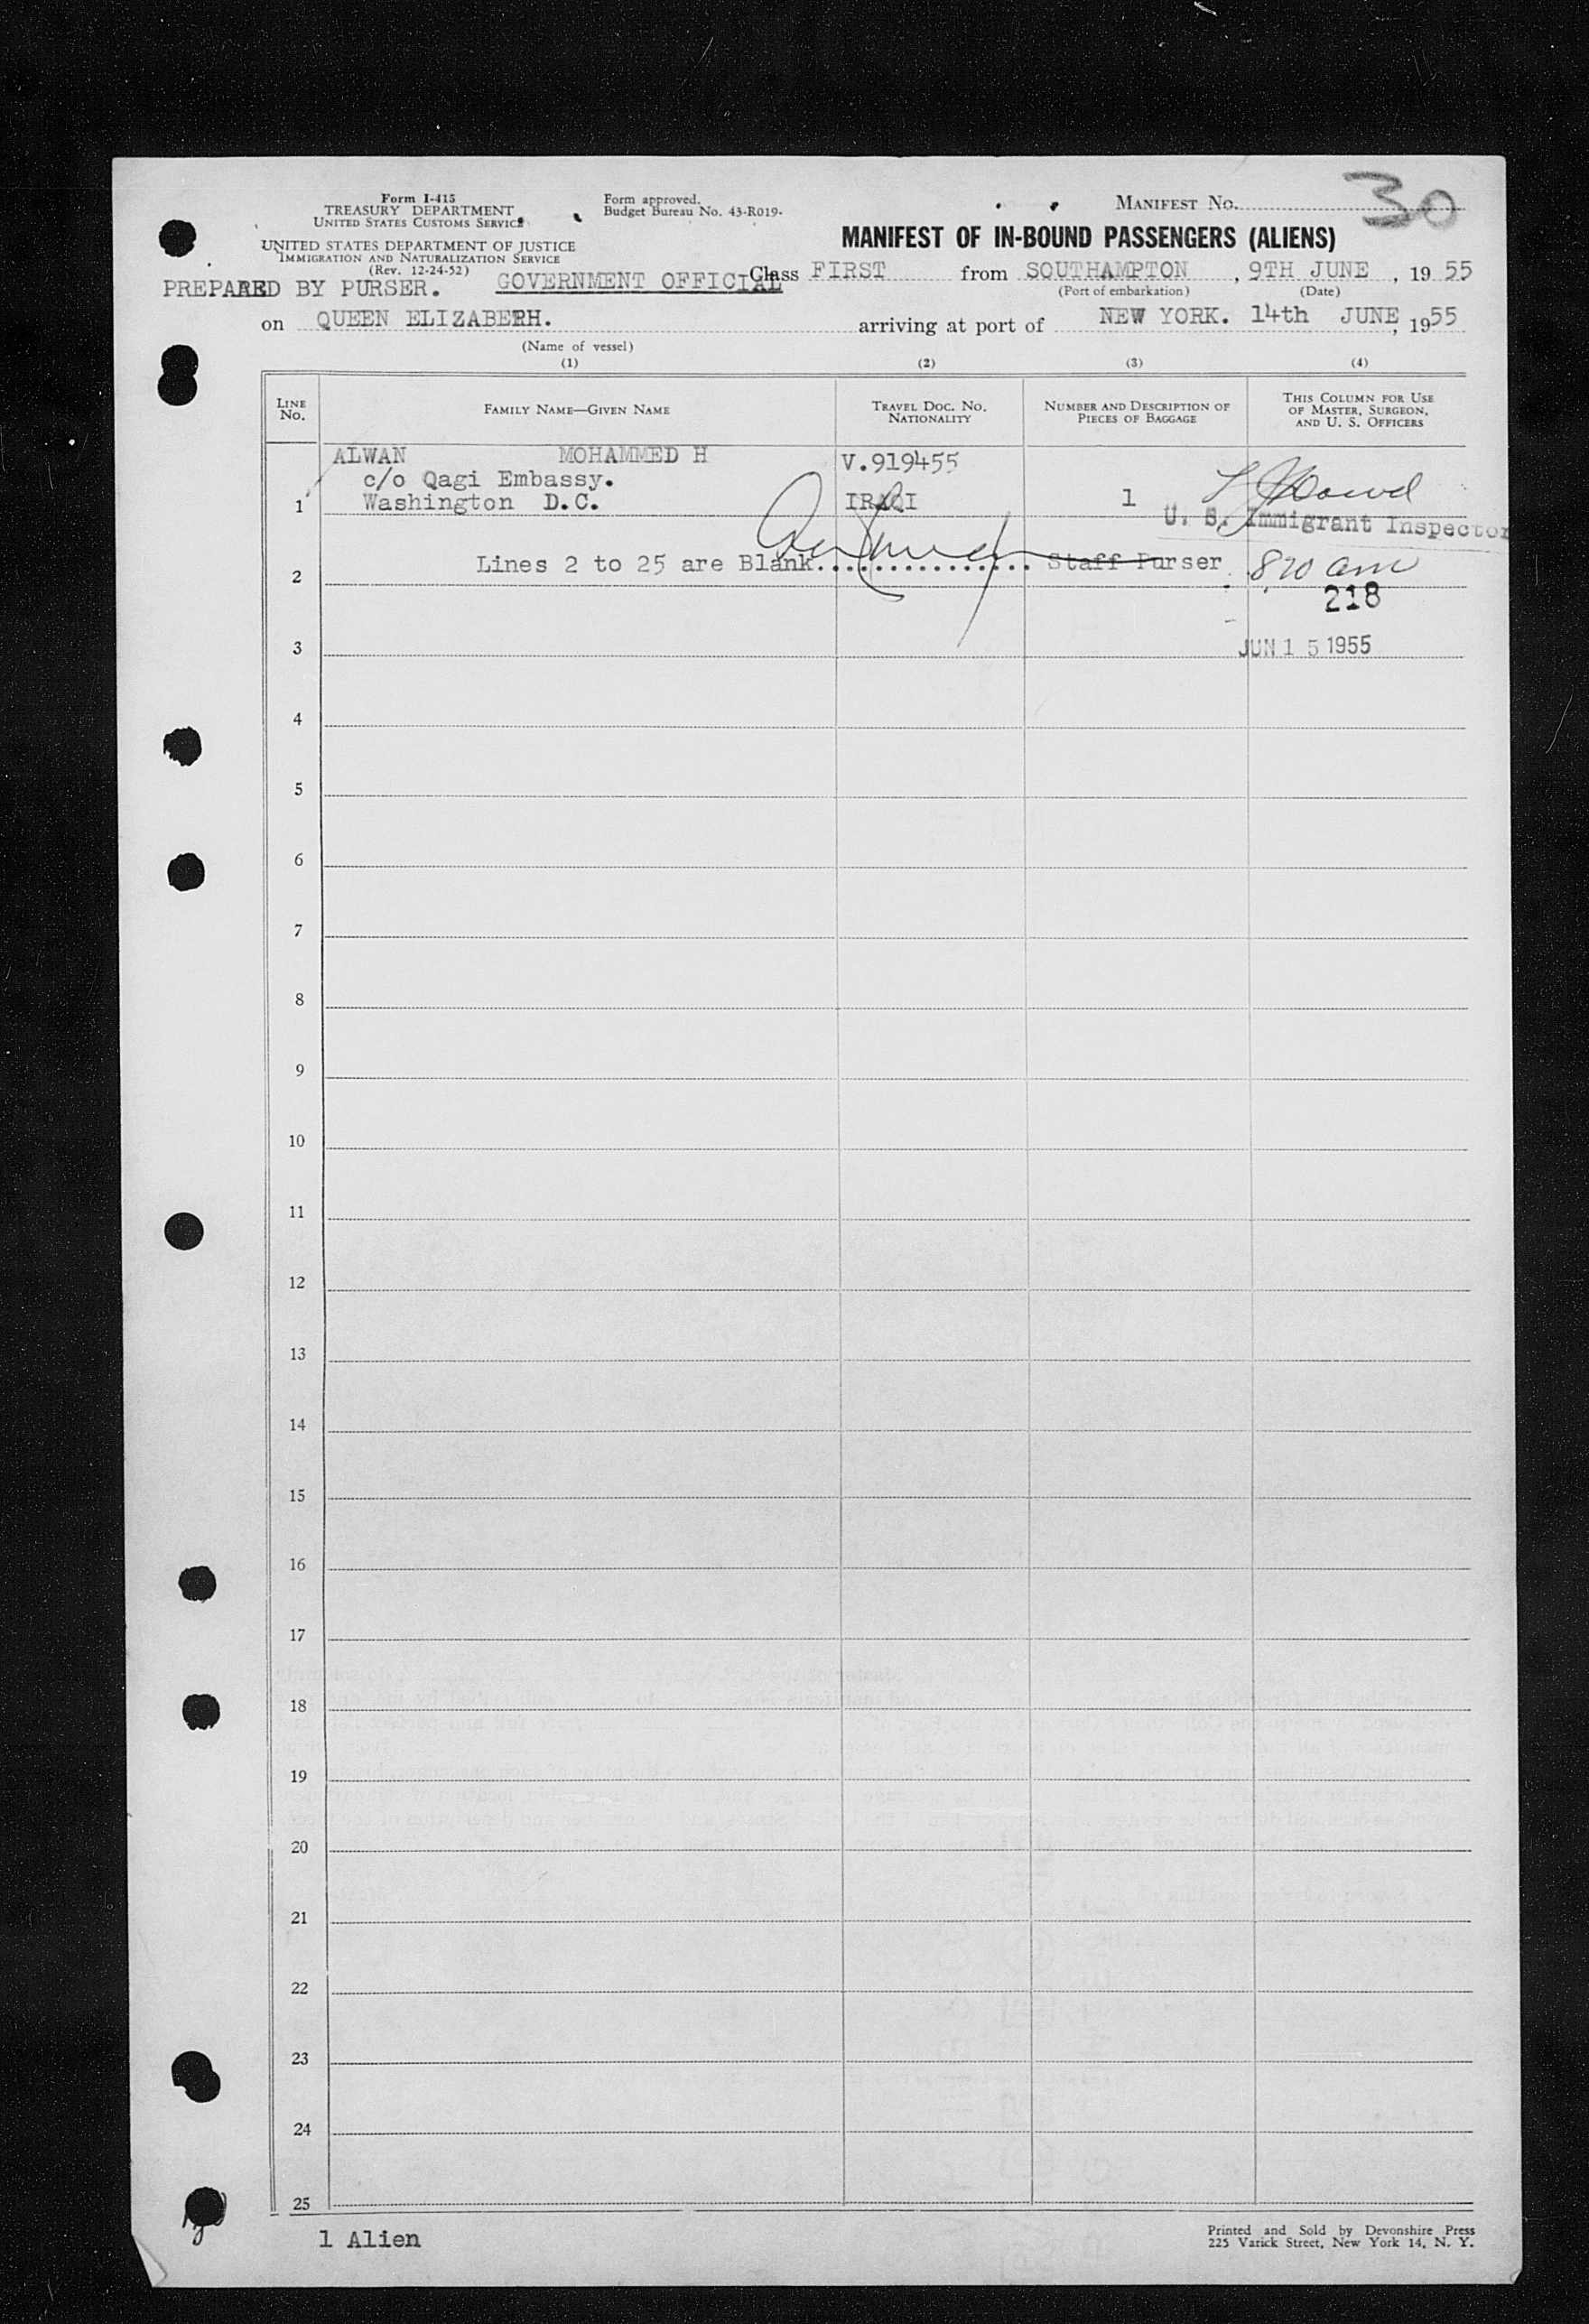 Form I-415
TREASURY DEPARTMENT
UNITED STATES CUSTOMS SERVICE
Form approved.
Budget Bureau No. 43-R019-
MANIFEST NO. 30
UNITED STATES DEPARTMENT OF JUSTICE
IMMIGRATION AND NATURALIZATION SERVICE
(Rev. 12-24-52)
MANIFEST OF IN-BOUND PASSENGERS (ALIENS)
PREPARED BY PURSER. GOVERNMENT OFFICIAL Class FIRST from SOUTHAMPTON, 9TH JUNE, 19 55
(Port of embarkation) (Date)
on QUEEN ELIZABERH. arriving at port of NEW YORK. 14th JUNE, 1955
(Name of vessel)
(1) (2) (3) (4)
LINE NO. FAMILY NAME—GIVEN NAME TRAVEL DOC. NO. NATIONALITY NUMBER AND DESCRIPTION OF PIECES OF BAGGAGE THIS COLUMN FOR USE OF MASTER, SURGEON, AND U. S. OFFICERS
ALWAN MOHAMMED H V.919455
c/o Qagi Embassy.
1 Washington D.C. IRAQI 1
U. S. Immigrant Inspector
2 Lines 2 to 25 are Blank............... Staff Purser 820 am
218
3 JUN 15 1955
4
5
6
7
8
9
10
11
12
13
14
15
16
17
18
19
20
21
22
23
24
25
1 Alien
Printed and Sold by Devonshire Press
225 Varick Street, New York 14, N. Y.